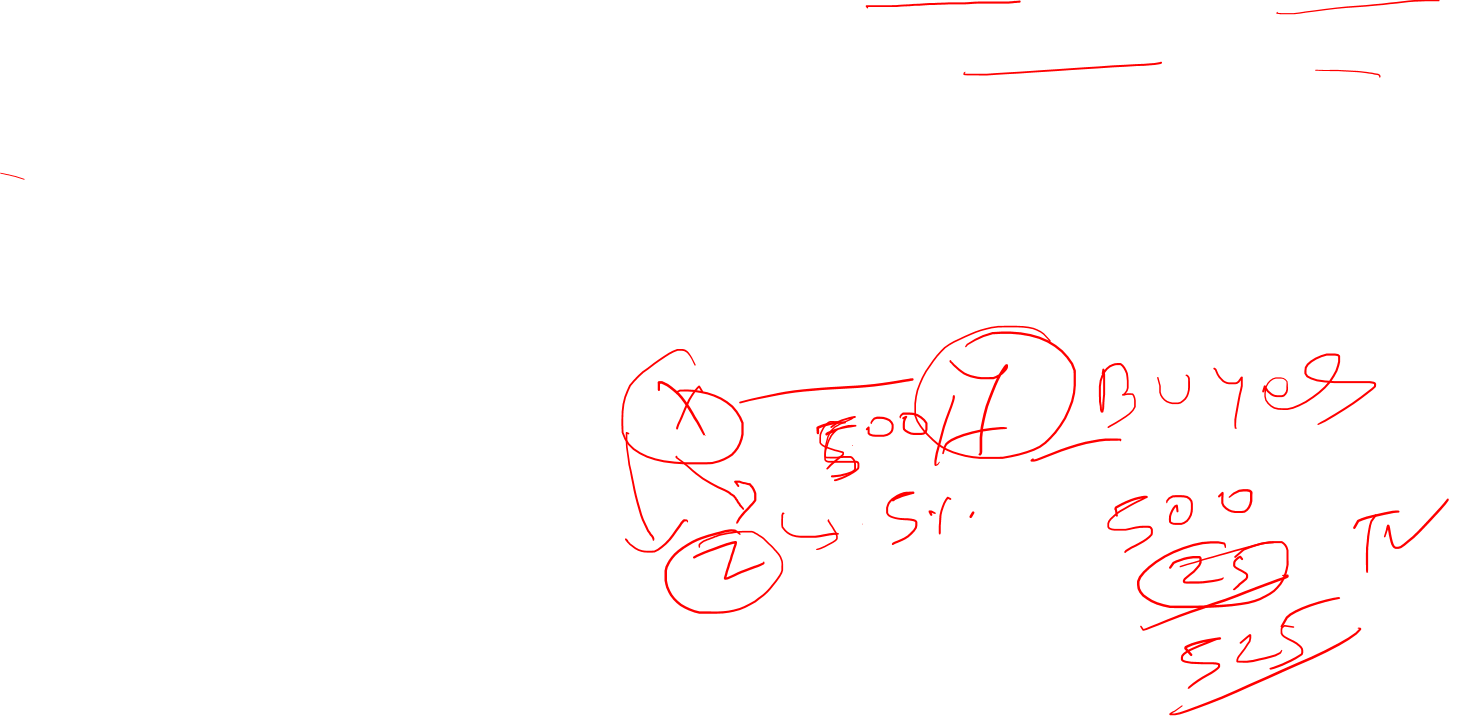 X 500 Buyer
Z 5%
500
25
525